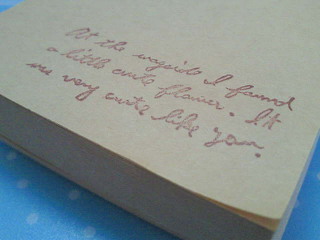 At the wayside I found
a little cute flower. It
was very cute like you.